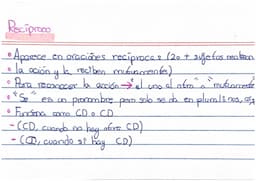 Recíproco
• Aparece en oraciónes reciprocas (2 o + sujetos realizan
• la acción y la reciben mutuamente)
• Para reconocer la acción → "el uno al otro" o "mutuamente"
• "Se" es un pronombre pero solo se da en plural
• Funciona como CD o CD
- (CD, cuando no hay otro CD)
- (CD, cuando sí hay CD)